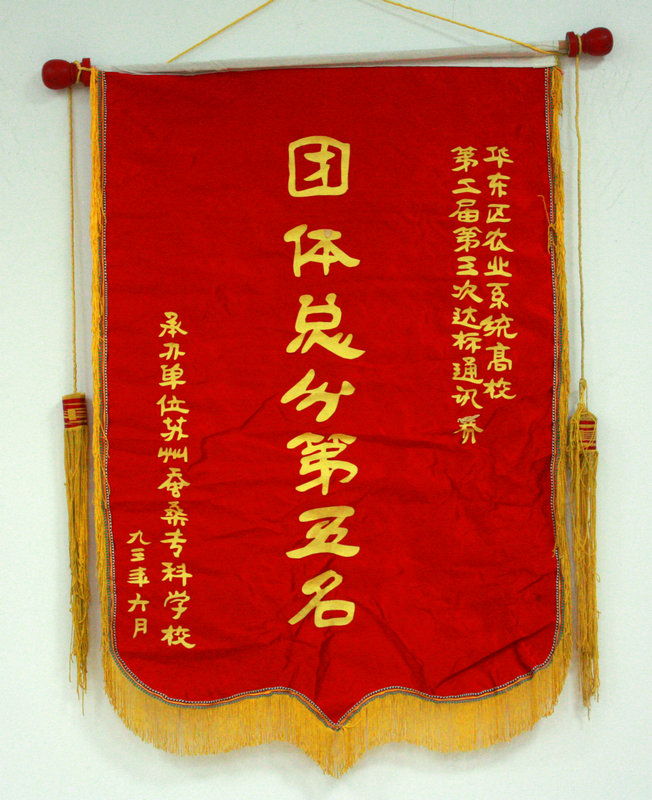 华东区农业系统高校
第二届第三次达标通讯赛
团体总分第五名
承办单位苏州蚕桑专科学校
九三年六月